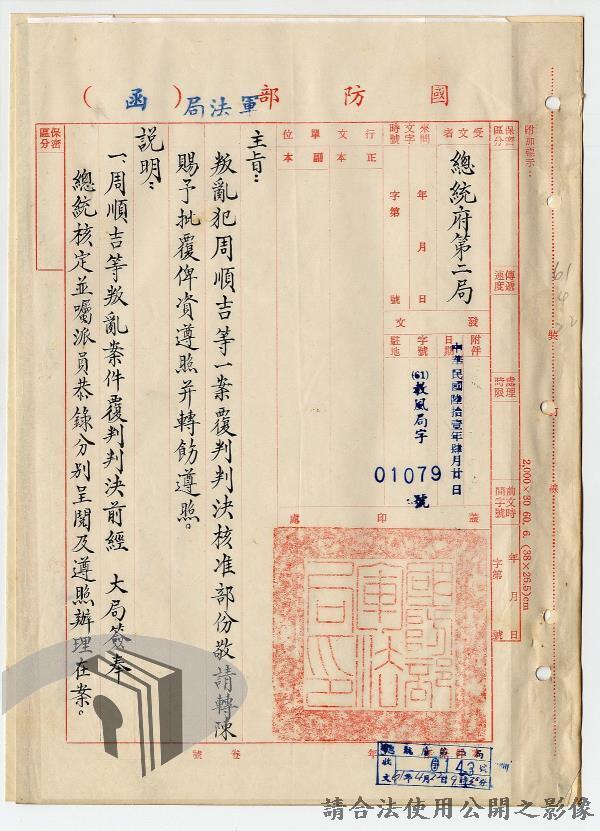 國防部軍法局(函)
附加標示：
保密區分
受文者
總統府第二局
來文時間字號
年 月 日
字第 號
行文單位
正本
副本
傳遞速度
處理時限
前文時間字號
年 月 日
字第 號
發文
附件
日期
中華民國陸拾壹年肆月廿日
字號
(61)教風局字
01079
號
駐地
蓋印處
國防部軍法局印
主旨：
叛亂犯周順吉等一案覆判判決核准部份敬請轉陳
賜予批覆俾資遵照并轉飭遵照。
說明：
一、周順吉等叛亂案件覆判判決前經 大局簽奉
總統核定並囑派員恭錄分別呈閱及遵照辦理在案。
保密區分
年
卷
號
裝
訂
線
2,000×30 60. 6. (38×26.5)cm
61
4
0143
收文
61年4月22日9時
分
請合法使用公開之影像